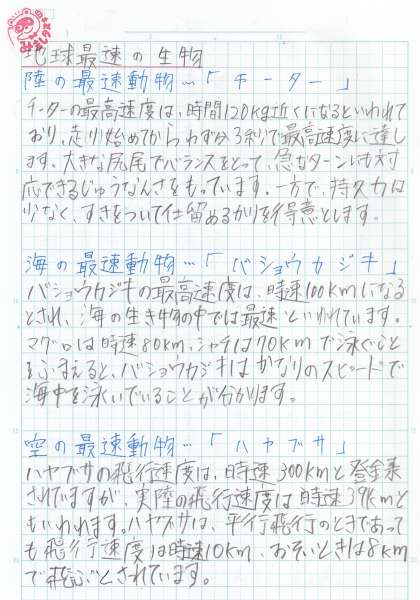 みました
地球最速の生物
陸の最速動物…「チーター」
チーターの最高速度は、時間120kg近くになるといわれて
おり、走り始めてからわずか3秒で最高速度に達し
ます。大きな尻尾でバランスをとって、急なターンにも対
応できるじゅうなんさをもっています。一方で、持久力は
少なく、すきをついて仕留めるかりを得意とします。
海の最速動物…「バショウカジキ」
バショウカジキの最高速度は、時速100kmになる
とされ、海の生き物の中では最速といわれています。
マグロは時速80km、シャチは70kmで泳ぐこと
をふまえると、バショウカジキはかなりのスピードで
海中を泳いでいることが分かります。
空の最速動物…「ハヤブサ」
ハヤブサの飛行速度は、時速300kmと登録
されていますが、実際の飛行速度は時速39kmと
もいわれます。ハヤブサは、平行飛行のときであって
も飛行速度は時速10km、おそいときは8km
で飛ぶとされています。